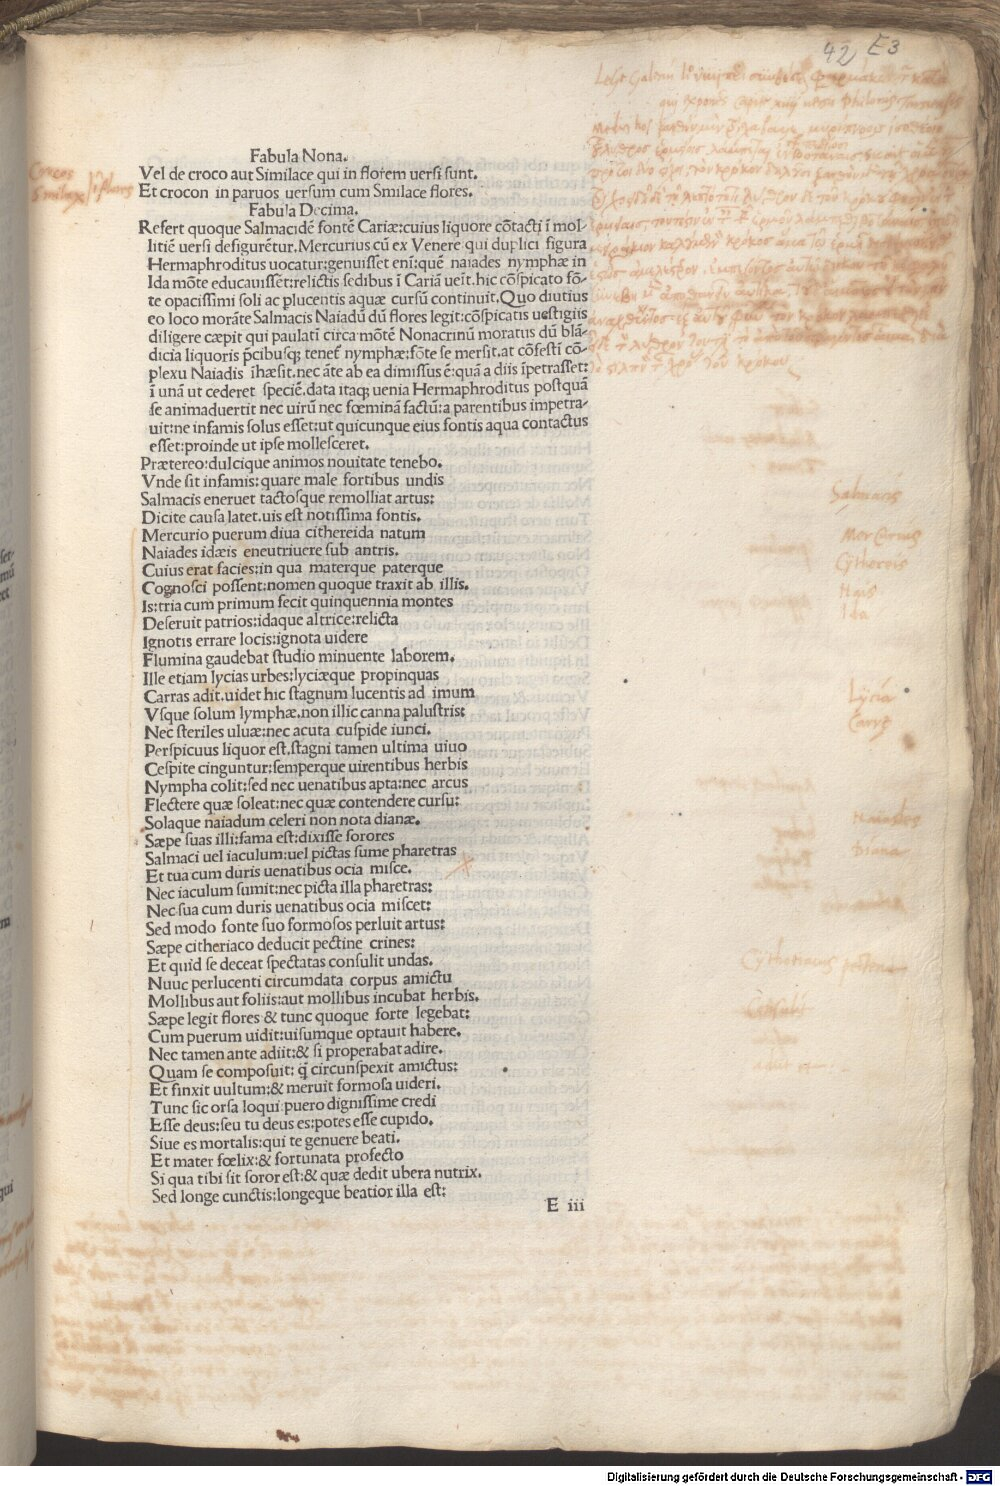 42 E3
Fabula Nona.
Vel de croco aut Similace qui in florem uersi sunt.
Et crocon in paruos uersum cum Smilace flores.
Fabula Decima.
Refert quoque Salmacidẽ fontẽ Cariæ:cuius liquore cõtacti ĩ mol-
litiẽ uersi defigurẽtur.Mercurius cũ ex Venere qui duplici figura
Hermaphroditus uocatur:genuisset enĩ:quẽ naiades nymphæ in
Ida mõte educauissẽt:relictis sedibus ĩ Cariã ueĩt.hic cõspicato fõ-
te opacissimi soli ac plucentis aquæ cursũ continuit.Quo diutius
eo loco morãte Salmacis Naiadũ dũ flores legit:cõspicatis uestigiis
diligere cæpit qui paulatĩ circa mõtẽ Nonacrinũ moratus dũ blã-
dicia liquoris p̃cibusq; tenet̃ nymphæ:fõte se mersit.at cõfestĩ cõ-
plexu Naiadis ĩhæsit.nec ãte ab ea dimissus ẽ:quã a diis ĩpetrasset:
ĩ unã ut cederet speciẽ.data itaq; uenia Hermaphroditus postquã
se animaduertit nec uirũ nec fœminã factũ:a parentibus impetra-
uit:ne infamis solus esset:ut quicunque eius fontis aqua contactus
esset:proinde ut ipse mollesceret.
Prætereo:dulcique animos nouitate tenebo.
Vnde sit infamis:quare male fortibus undis
Salmacis eneruet tactosque remolliat artus:
Dicite causa latet.uis est notissima fontis.
Mercurio puerum diua cithereida natum
Naiades idæis eneutriuere sub antris.
Cuius erat facies:in qua materque paterque
Cognosci possent:nomen quoque traxit ab illis.
Is:tria cum primum fecit quinquennia montes
Deseruit patrios:idaque altrice:relicta
Ignotis errare locis:ignota uidere
Flumina gaudebat studio minuente laborem.
Ille etiam lycias urbes:lyciæque propinquas
Carras adit.uidet hic stagnum lucentis ad imum
Vsque solum lymphæ.non illic canna palustris:
Nec steriles uluæ:nec acuta cuspide iunci.
Perspicuus liquor est.stagni tamen ultima uiuo
Cespite cinguntur:semperque uirentibus herbis
Nympha colit:sed nec uenatibus apta:nec arcus
Flectere quæ soleat:nec quæ contendere cursu:
Solaque naiadum celeri non nota dianæ.
Sæpe suas illi:fama est:dixisse sorores
Salmaci uel iaculum:uel pictas sume pharetras
Et tua cum duris uenatibus ocia misce.
Nec iaculum sumit:nec picta illa pharetras:
Nec sua cum duris uenatibus ocia miscet:
Sed modo fonte suo formosos perluit artus:
Sæpe citheriaco deducit pectine crines:
Et quid se deceat spectatas consulit undas.
Nuuc perlucenti circumdata corpus amictu
Mollibus aut foliis:aut mollibus incubat herbis.
Sæpe legit flores & tunc quoque forte legebat:
Cum puerum uidit:uisumque optauit habere.
Nec tamen ante adiit:& si properabat adire.
Quam se composuit: q̃ circunspexit amictus:
Et finxit uultum:& meruit formosa uideri.
Tunc sic orsa loqui:puero dignissime credi
Esse deus:seu tu deus es:potes esse cupido.
Siue es mortalis:qui te genuere beati.
Et mater fœlix:& fortunata profecto
Si qua tibi sit soror est:& quæ dedit ubera nutrix.
Sed longe cunctis:longeque beatior illa est:
E iii
Crocos
Smilax
flores
Salmacis
Mercurius
Cythereis
Nais
Ida
Lycia
Carys
Naiades
Diana
Cythoriacus pecten
Digitalisierung gefördert durch die Deutsche Forschungsgemeinschaft - DFG